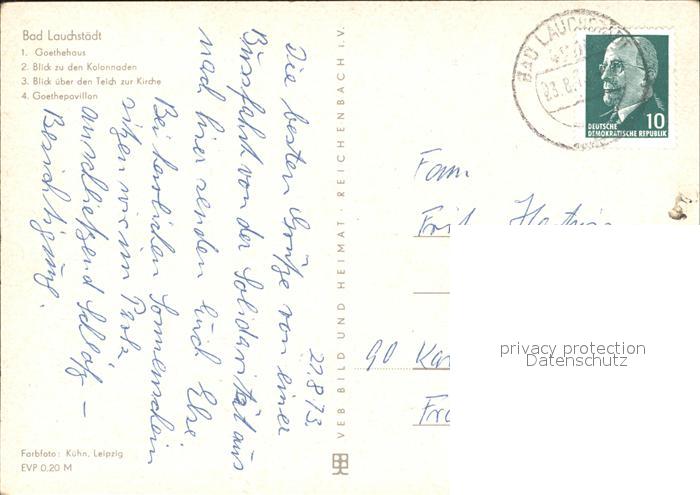 Bad Lauchstädt
1. Goethehaus
2. Blick zu den Kolonnaden
3. Blick über den Teich zur Kirche
4. Goethepavillon
27.8.73.
Die besten Grüße von einer
Busfahrt von der Solidarität aus
nach hier senden Euch
Bei herrlichen Sonnenschein
sitzen wir im Park
anschließend Schloß –
Besichtigung.
Farbfoto: Kühn, Leipzig
EVP 0,20 M
VEB BILD UND HEIMAT REICHENBACH i.V.
BAD LAUCHSTÄDT
DEUTSCHE
DEMOKRATISCHE REPUBLIK
10
Fam
90
privacy protection
Datenschutz